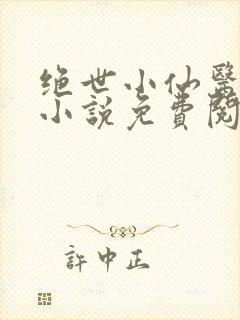 绝世小仙醫
小説免費閱
許中正